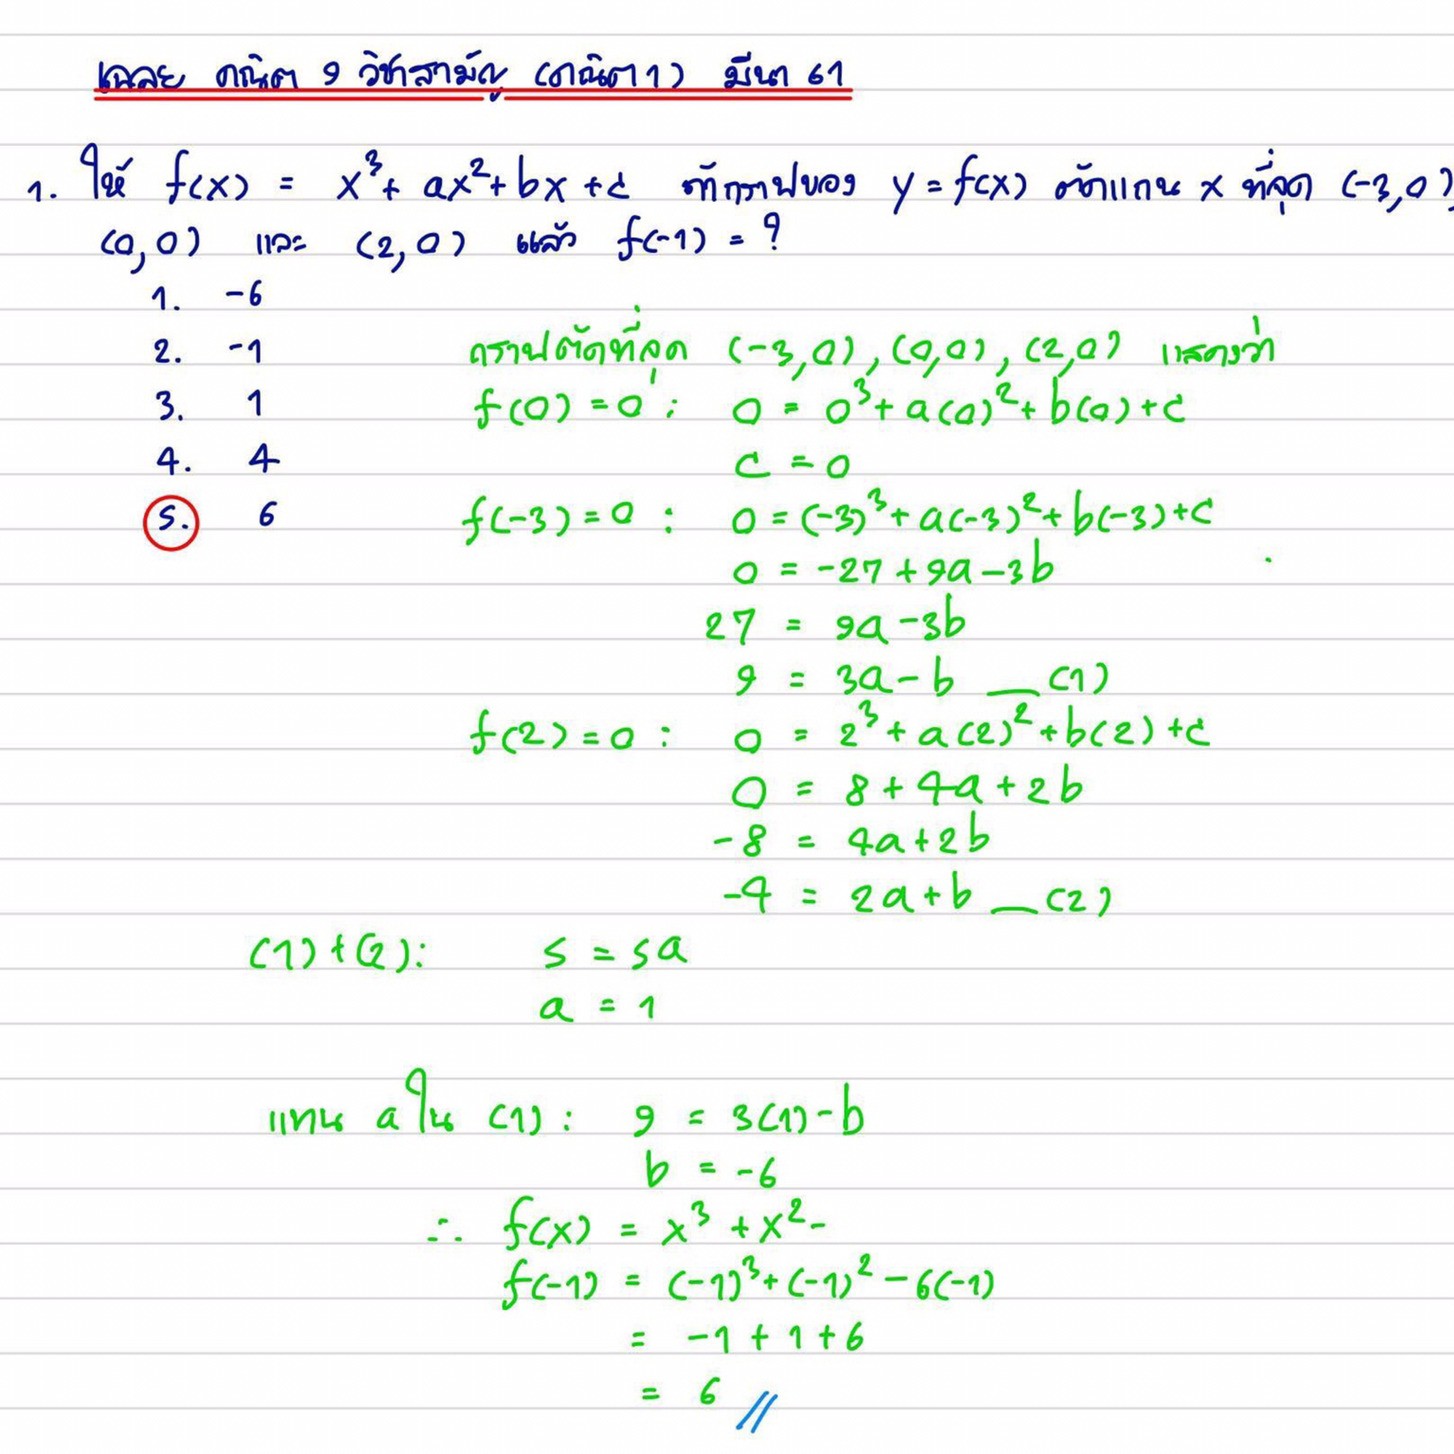 เฉลย คณิต 9 วิชาสามัญ (คณิต 1) มีนา 61
1. ให้ f(x) = x³ + ax² + bx + c ถ้ากราฟของ y = f(x) ตัดแกน x ที่จุด (-3,0),
(0,0) และ (2,0) แล้ว f(-1) = ?
1. -6
2. -1
3. 1
4. 4
5. 6
กราฟตัดที่จุด (-3,0), (0,0), (2,0) แสดงว่า
f(0) = 0 : 0 = 0³ + a(0)² + b(0) + c
c = 0
f(-3) = 0 : 0 = (-3)³ + a(-3)² + b(-3) + c
0 = -27 + 9a - 3b
27 = 9a - 3b
9 = 3a - b _ (1)
f(2) = 0 : 0 = 2³ + a(2)² + b(2) + c
0 = 8 + 4a + 2b
-8 = 4a + 2b
-4 = 2a + b _ (2)
(1) + (2) : 5 = 5a
a = 1
แทน a ใน (1) : 9 = 3(1) - b
b = -6
∴ f(x) = x³ + x² -
f(-1) = (-1)³ + (-1)² - 6(-1)
= -1 + 1 + 6
= 6 //